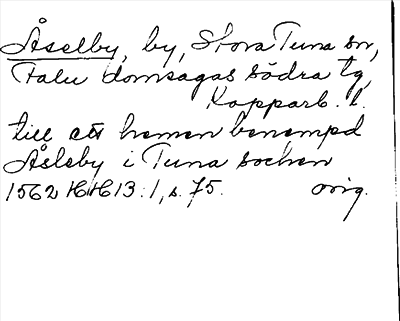 Åselby, by, Stora Tuna sn,
Falu domsagas södra tg,
Kopparb. l.
till ett heman benempd
Åsleby i Tuna sochen
1562 HH 13:1, s. 75. orig.